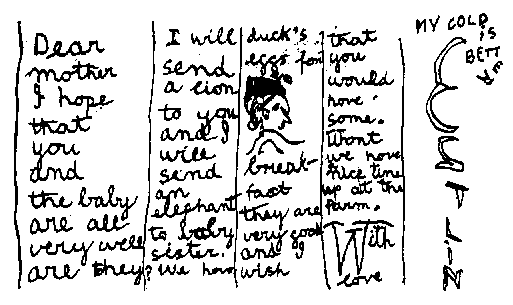 Dear
mother
I hope
that
you
and
the baby
are all
very well
are they?
I will
send
a lion
to you
and I
will
send
an
elephant
to baby
sister.
We have
duck's
eggs for
break-
fast
they are
very good
and I
wish
that
you
would
have
some.
Wont
we have
nice time
up at the
farm.
With
love
MY COLD
IS
BETT
ER